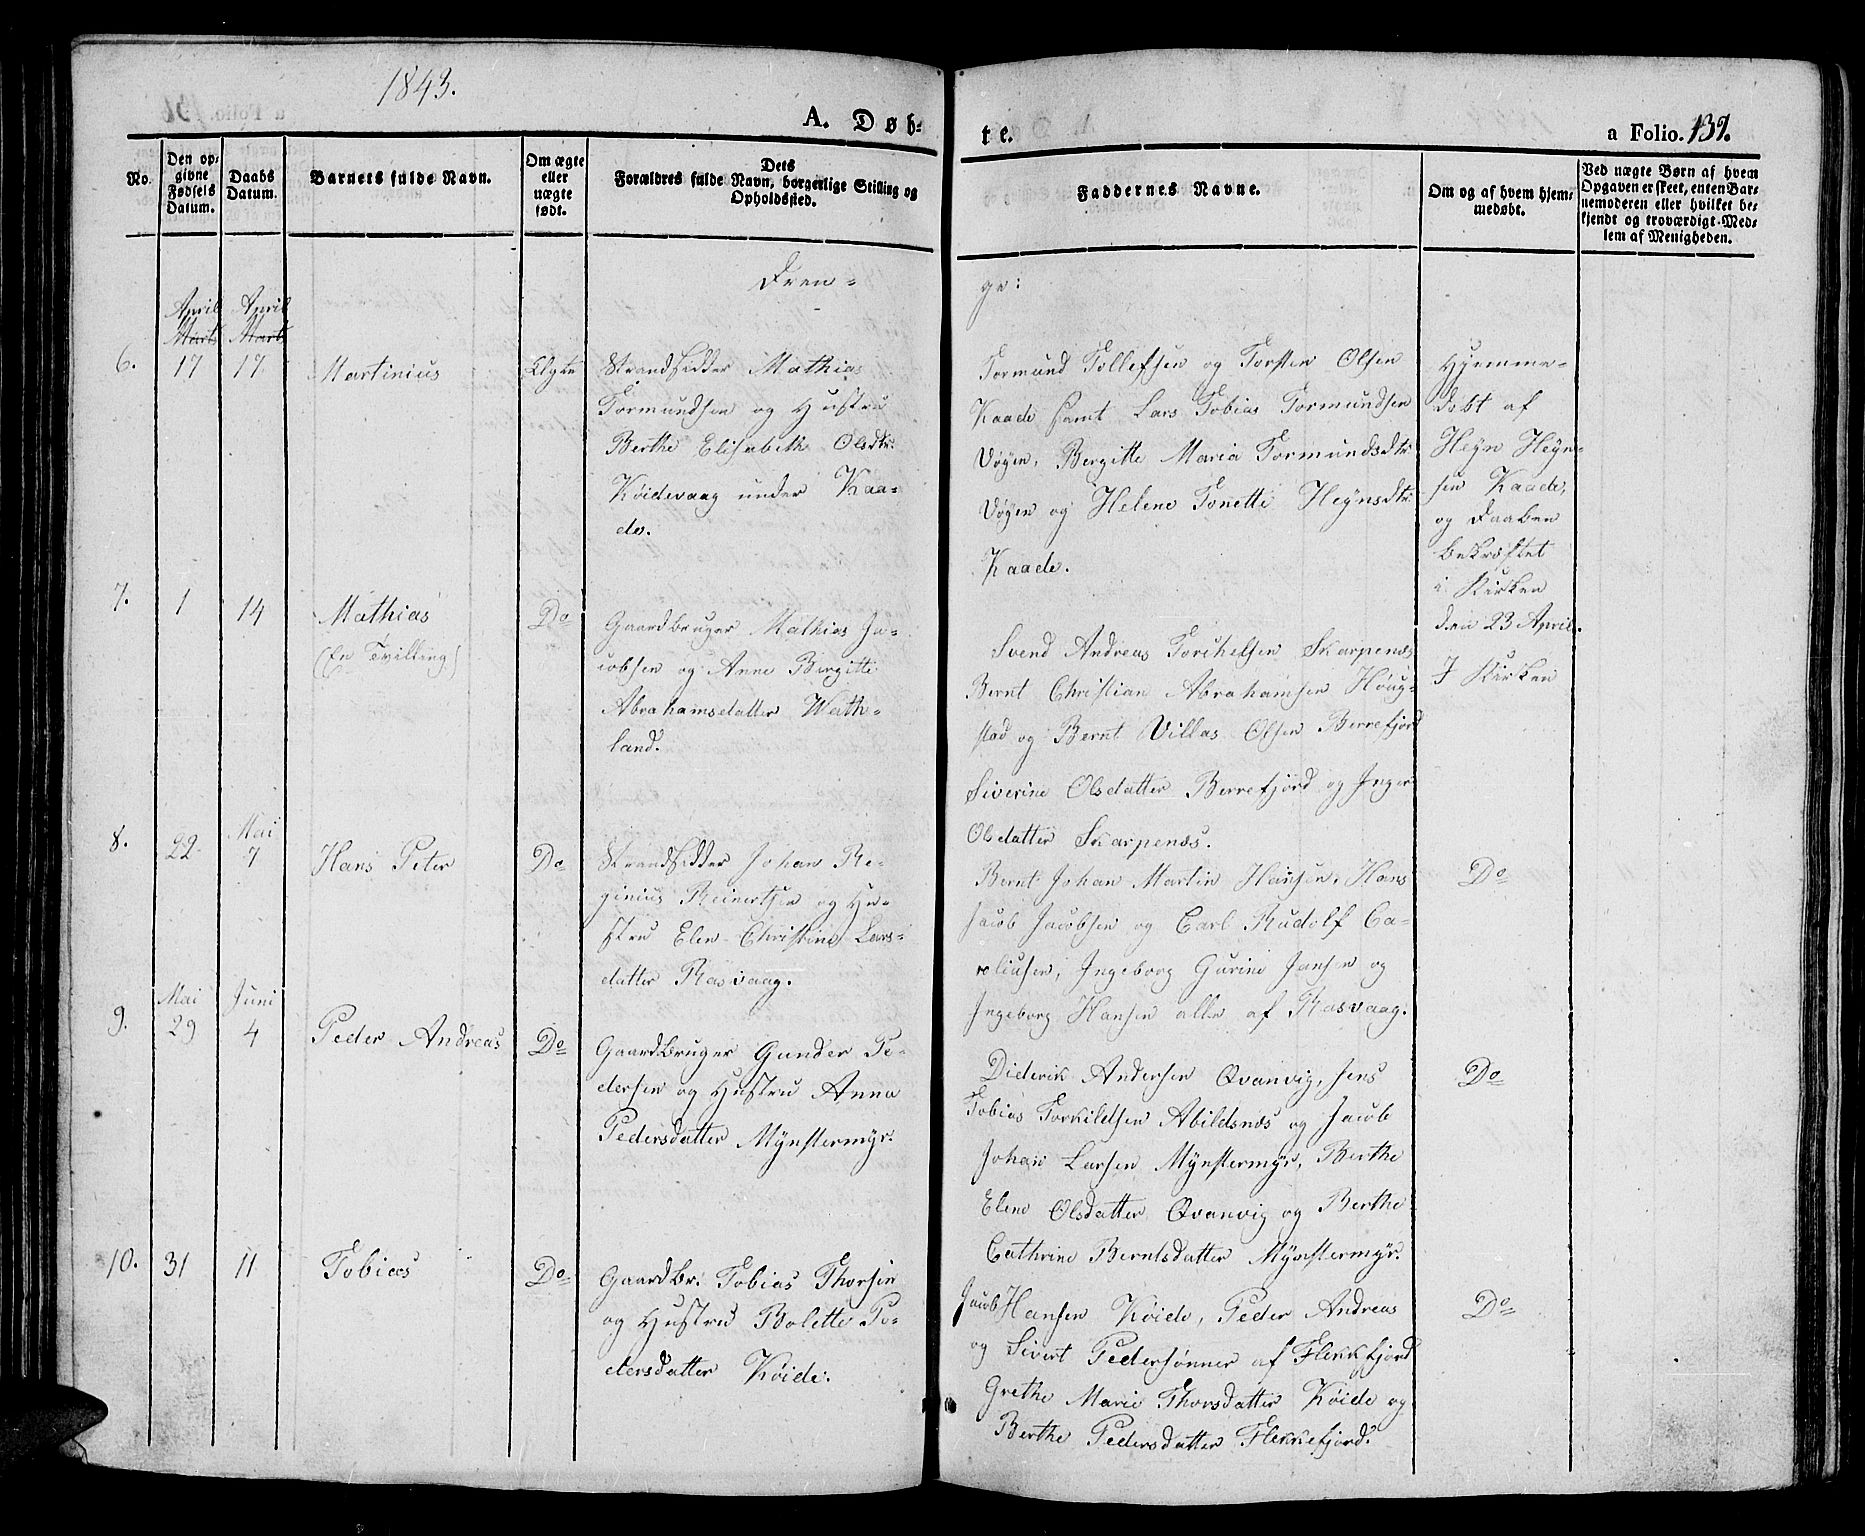 1843.
A. Døb-
te.
a Folio. 139.
No.
Den op-
givne
Fødsels
Datum.
Daabs
Datum.
Barnets fulde Navn.
Om ægte
eller
uægte
født.
Dets
Forældres fulde Navn, borgerlige Stilling og
Opholdssted.
Faddernes Navne.
Om og af hvem hjem-
medøbt.
Ved uægte Børn af hvem
Opgaven er skeet, enten Bar-
nemoderen eller hvilket be-
kjendt og troværdigt Med-
lem af Menigheden.
Dren-
ge:
April April
Marts Marts
6. 17 17 Martinius Ægte
Strandsidder Mathias
Tormundsen og Hustru
Berthe Elisabeth Olsdtr:
Kòidevaag under Kaa-
de.
Tormund Tollefsen og Torsten Olsen
Kaade samt Lars Tobias Tormundsen
Vògen, Bergitte Maria Tormundsdtr
Vògen og Helene Tonette Heynsdtr:
Kaade.
Hjemme-
dòbt af
Heyn Heyn-
sen Kaade,
og Daaben
bekræftet
i Kirken
den 23 April.
7. 1 14 Mathias Do
(En Tvilling)
Gaardbruger Mathias Ja-
cobsen og Anne Bergitte
Abrahamsdatter Wath-
land.
Svend Andreas Torchelsen Skarpenæs
Bernt Christian Abrahamsen Hòug-
stad og Bernt Villas Olsen Berrefjord
Siverine Olsdatter Berrefjord og Inger
Olsdatter Skarpenæs.
I Kirken
Mai
8. 22 7 Hans Peter Do
Strandsidder Johan Re-
ginius Reinertsen og Hu-
stru Elen Christine Lars-
datter Rasvaag.
Bernt Johan Martin Hansen, Hans
Jacob Jacobsen og Carl Rudolf Ca-
roliusen, Ingeborg Gurine Jansen og
Ingeborg Hansen alle af Rasvaag.
Do
Mai Juni
9. 29 4 Peder Andreas Do
Gaardbruger Gunder Pe-
dersen og Hustru Anna
Pedersdatter Mÿnstermÿr.
Diderik Andersen Qvanvig, Jens
Tobias Torkildsen Abildsnæs og Jacob
Johan Larsen Mÿnstermÿr, Berthe
Elene Olsdatter Qvanvig og Berthe
Cathrine Berntsdatter Mÿnstermÿr.
Do
10. 31 11 Tobias Do
Gaardbr. Tobias Thorsen
og Hustru Bolette Pe-
dersdatter Kòide.
Jacob Hansen Kòide, Peder Andreas
og Sivert Pedersònner af Flekkfjord
Grethe Marie Thorsdatter Kòide og
Berthe Pedersdatter Flekkefjord.
Do